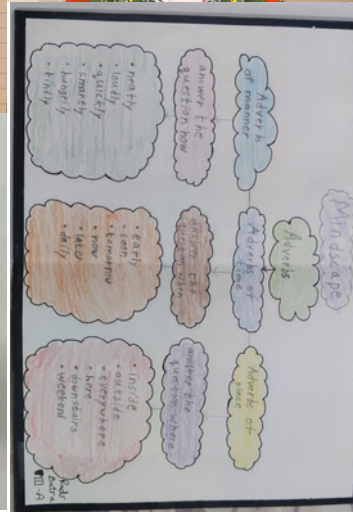 Mindscape
Adverbs
Adverb
of manner
Adverbs of
time
Adverbs of
place
answer the
question how
answer the
question when
answer the
question where
• neatly
• loudly
• quickly
• smartly
• hungrily
• kindly
• early
• soon
• tomorrow
• now
• later
• daily
• inside
• outside
• everywhere
• here
• downstairs
• weekend
Batra
III-A